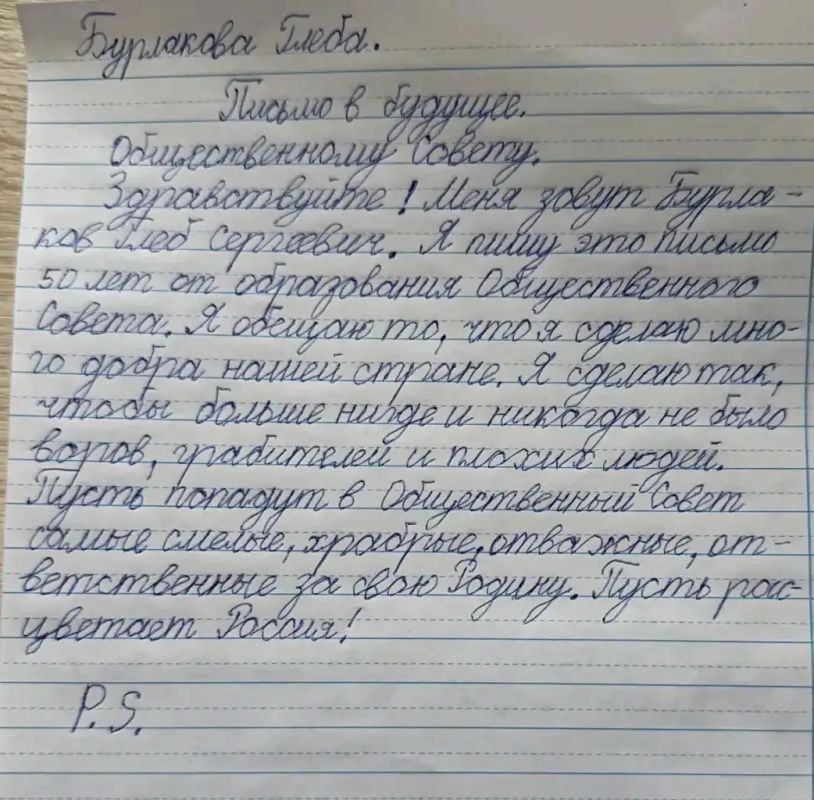 Бурлакова Глеба.
Письмо в будущее.
Общественному Совету.
Здравствуйте! Меня зовут Бурла-
ков Глеб Сергеевич. Я пишу это письмо
50 лет от образования Общественного
Совета. Я обещаю то, что я сделаю мно-
го добра нашей стране. Я сделаю так,
чтобы больше нигде и никогда не было
воров, грабителей и плохих людей.
Пусть попадут в Общественный Совет
самые смелые, храбрые, отважные, от-
ветственные за свою Родину. Пусть рас-
цветает Россия!
P.S.